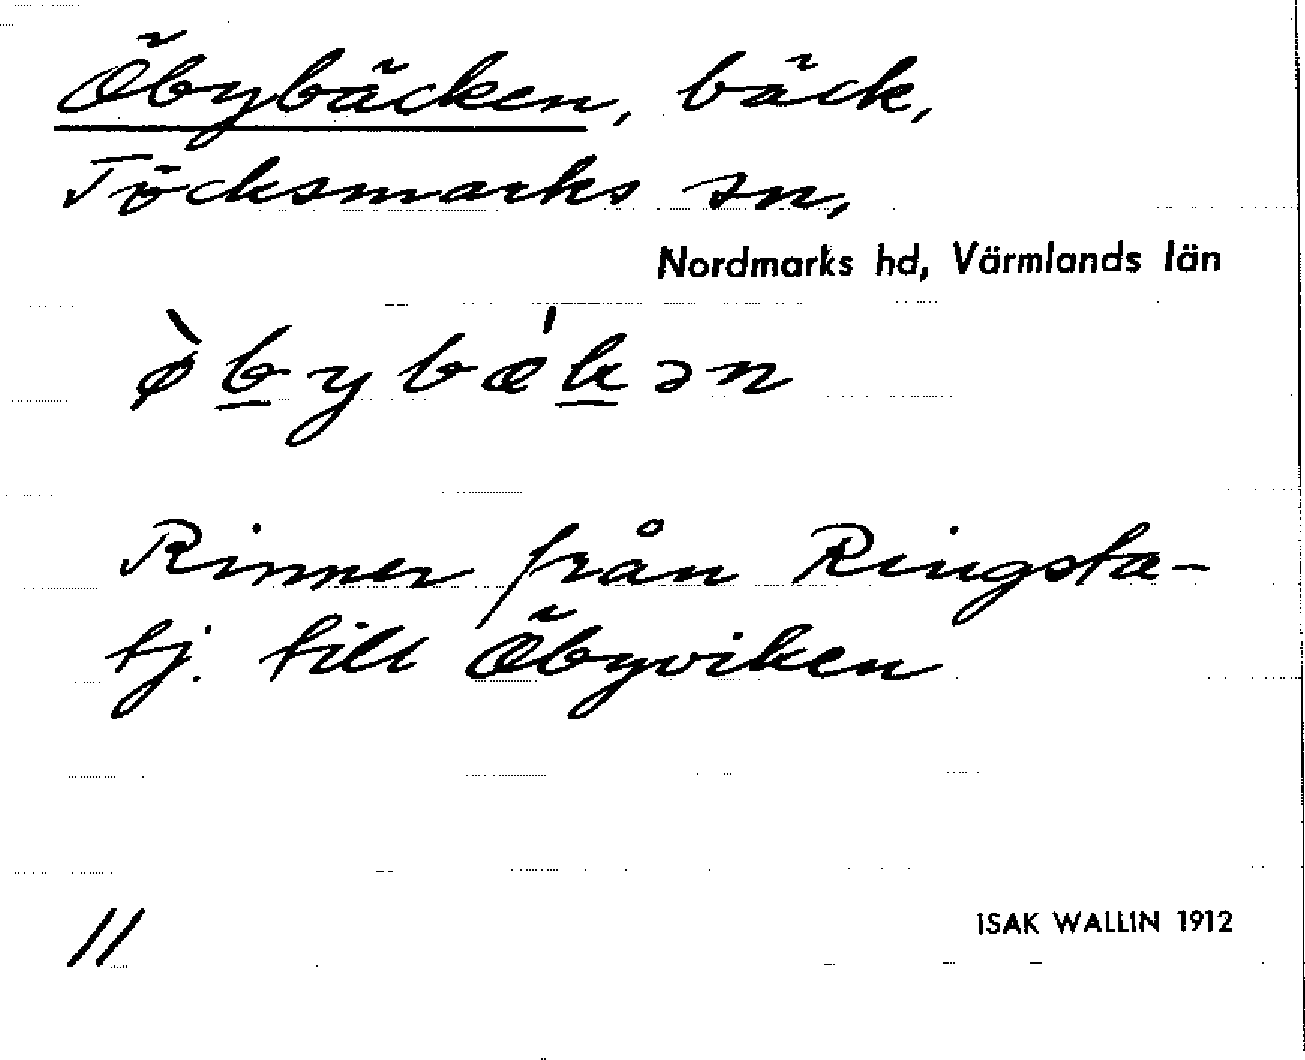 Öbybäcken, bäck,
Töcksmarks sn,
Nordmarks hd, Värmlands län
ø̀bybæ'kən
Rinner från Ringsta-
tj. till Öbyviken
11
ISAK WALLIN 1912